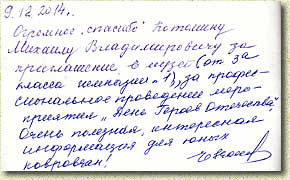 9.12.2014г.
Огромное "спасибо" Котомину
Михаилу Владимировичу за
приглашение в музей (от 3а
класса гимназии №1), за профес-
сиональное проведение меро-
приятия "День Героев Отечества".
Очень полезная, интересная
информация для юных
ковровчан!